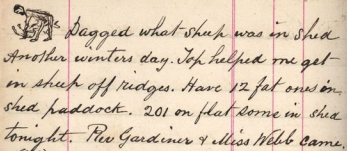 Dagged what sheep was in shed
Another winters day. Top helped me get
in sheep off ridges. Have 12 fat ones in
shed paddock. 201 on flat some in shed
tonight. Rev Gardiner & Miss Webb came.